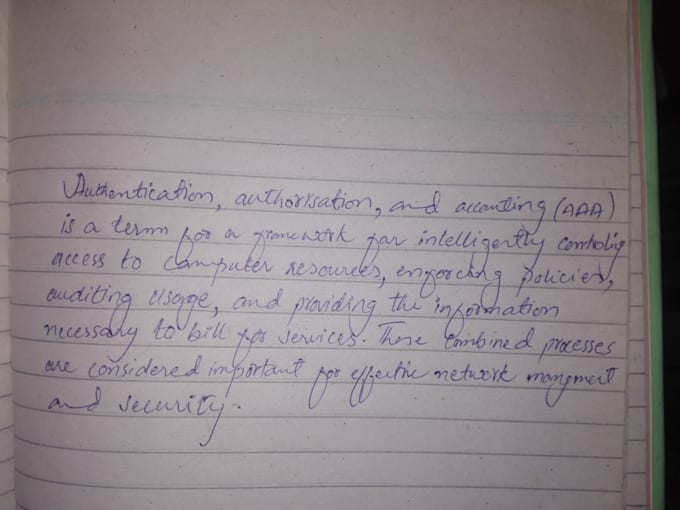 Authentication, authorisation, and accounting (AAA)
is a term for a framework for intelligently controlig
access to computer resources, enforcing policies,
auditing usage, and providing the information
necessary to bill for services. These combined processes
are considered important for effective network mangment
and security.